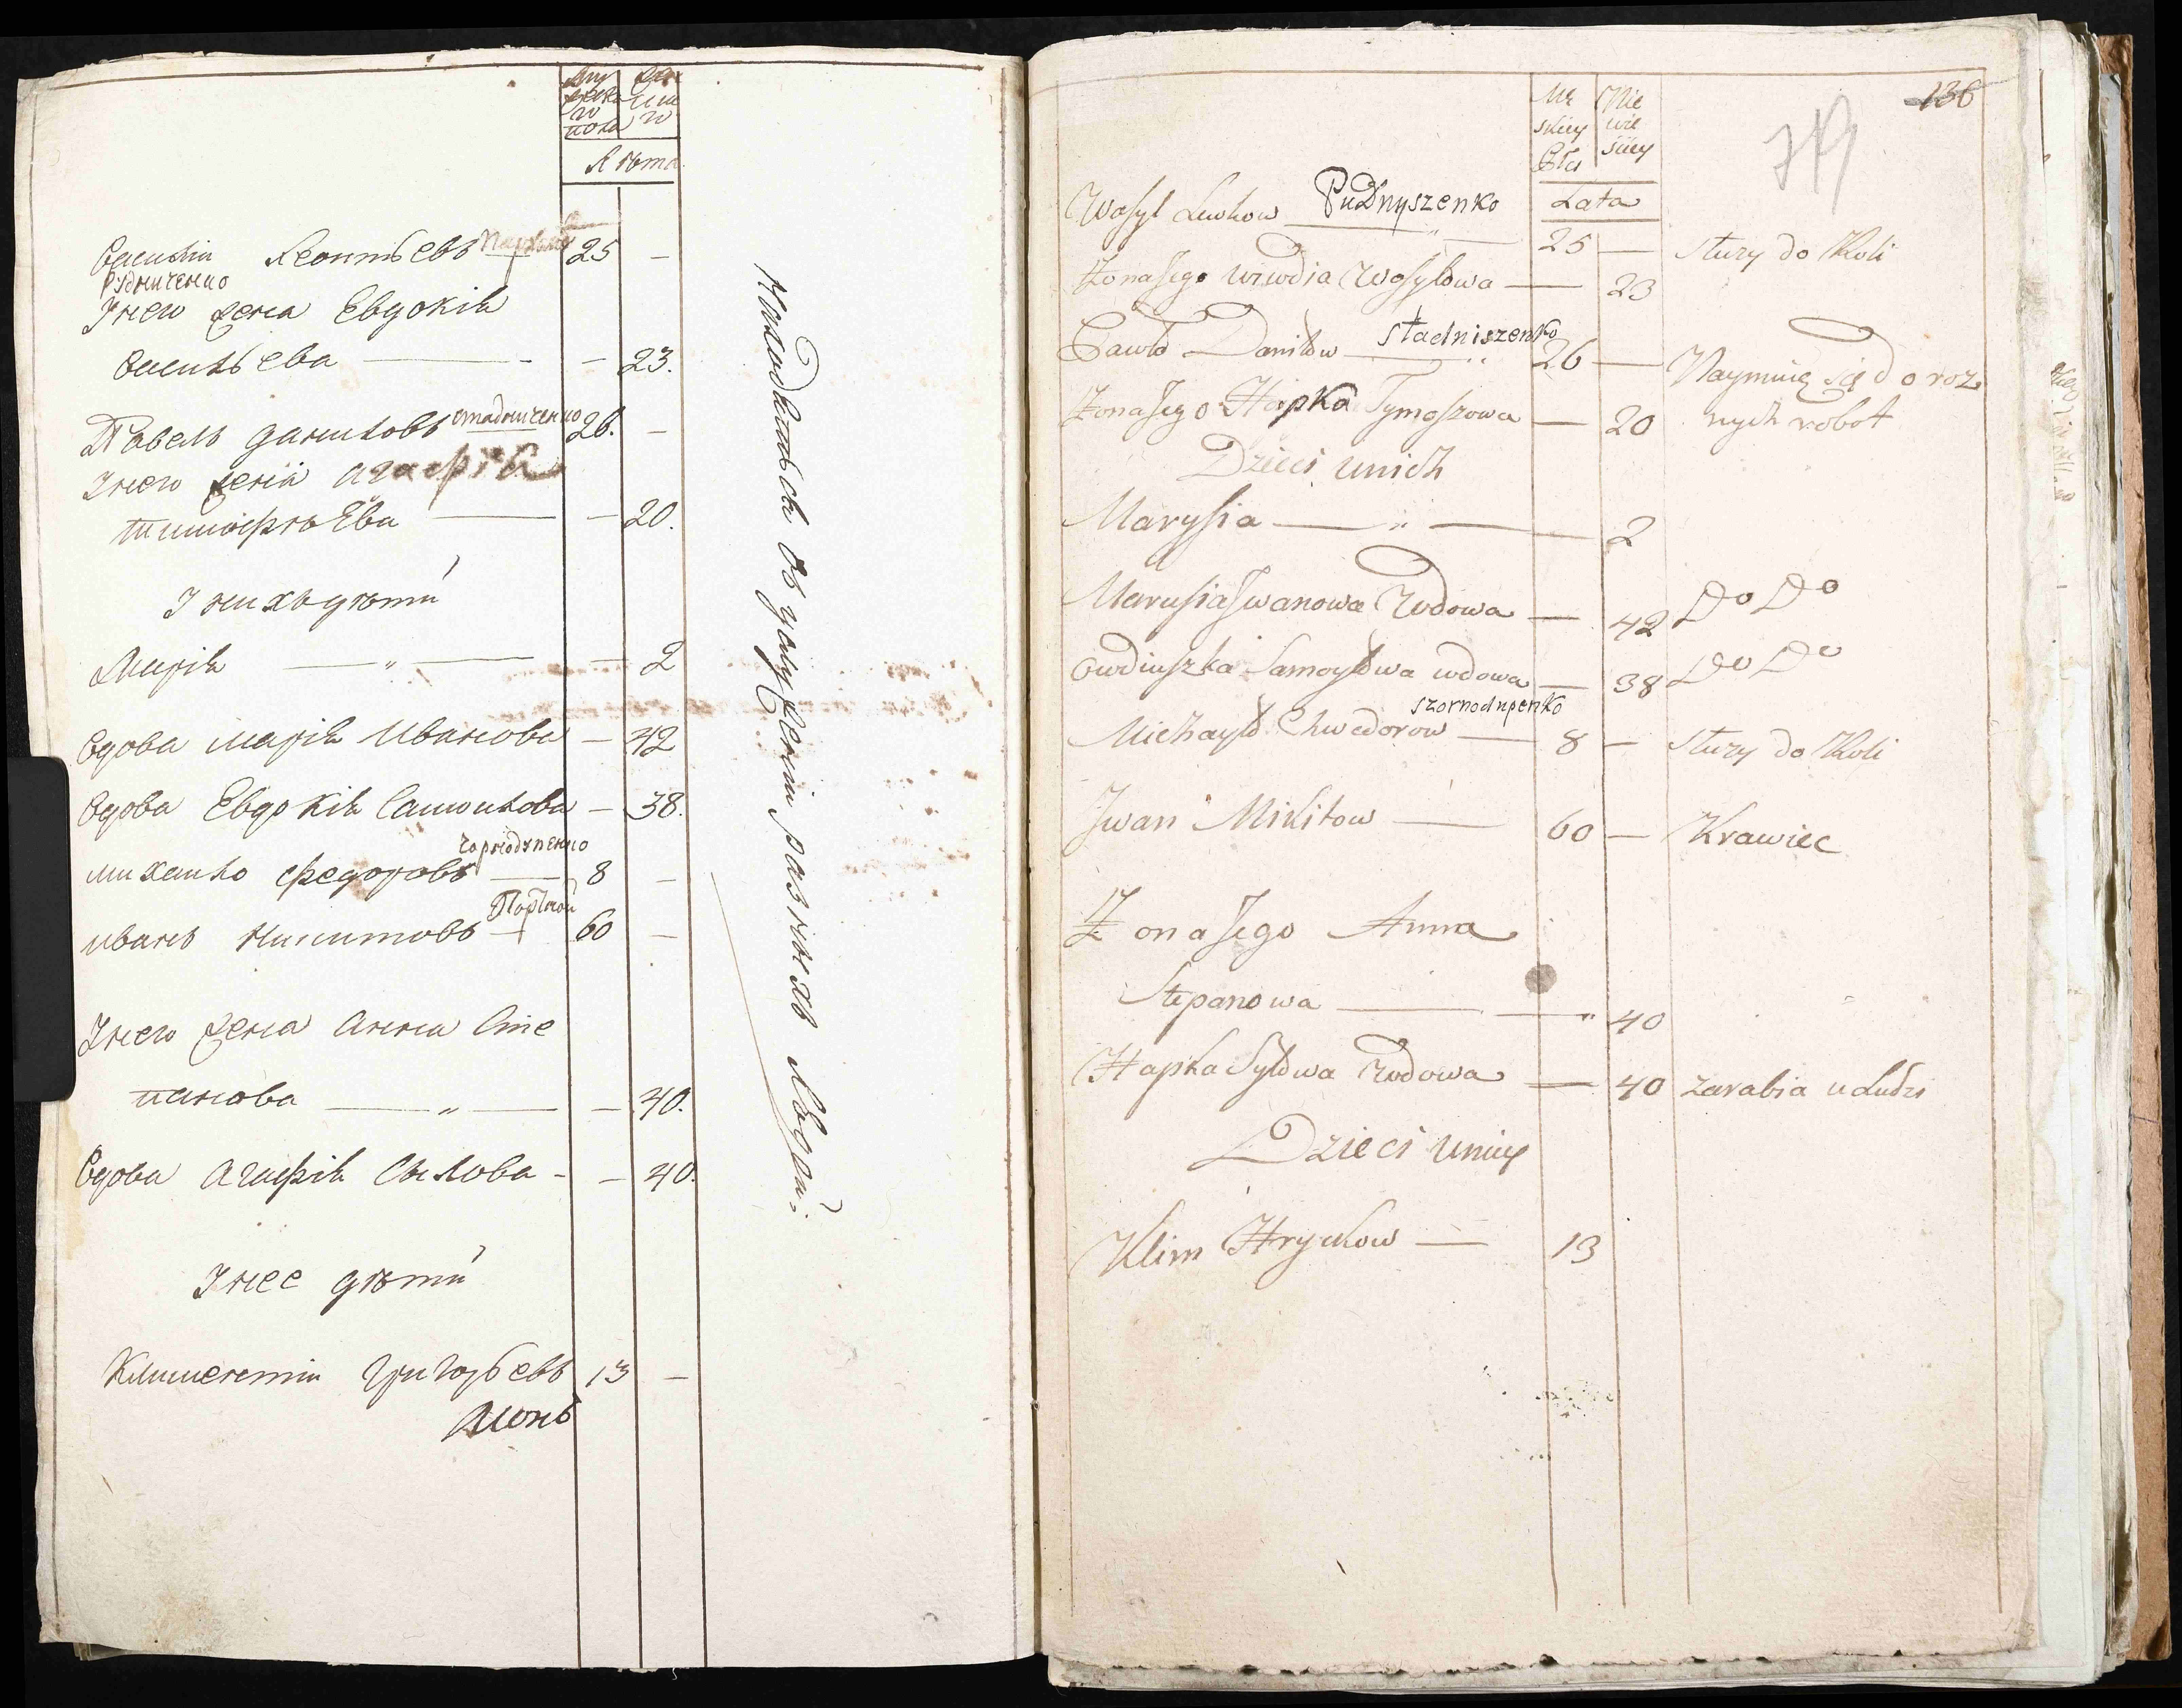 Му
жеска
го
пола
Жен
ска
го
Лѣта
Василій Леонтьевъ 25 —
Рудниченко
У него жена Евдокія
Васильева — — 23.
Павелъ Даниловъ стадниченко 26. —
У него жена Агафія
Тимофѣева — — 20.
У нихъ дѣти
Марія — " — — 2
Вдова Марія Иванова — 42
Вдова Евдокія Самойлова — 38.
чорнодупенко
Михайло Федоровъ — 8 —
Портной
Иванъ Никитовъ — 60 —
У него жена Анна Сте
панова — " — — 40.
Вдова Агафія Сылова - — 40.
У нее дѣти
Климентій Григорьевъ 13 —
Находятся въ услуженіи разныхъ людей:
Mę
skiey
Płci
Nie
wie
śćiey
Lata
136
Wasyl Lewkow Rudnyszenko 25 — służy do Roli
Żona Jego Wiwdia Wasylowa — 23
Pawło Daniłow stadniszenko 26 — Naymuię się do roz
nych robot
Żona Jego Hapka Tymoszowa — 20
Dzieci u nich
Marysia — " — — 2
Marusia Iwanowa Wdowa — 42 Do Do
Owdiuszka Samoyłowa wdowa — 38 Do Do
szornodupenko
Michayło Chwedorow — 8 — służy do Roli
Jwan Mikitow — 60 — Krawiec
Żona Jego Anna
Stepanowa — — " 40
Hapka Sylowa Wdowa — 40 zarabia u Ludzi
Dzieci u niey
Klim Hryckow — 13